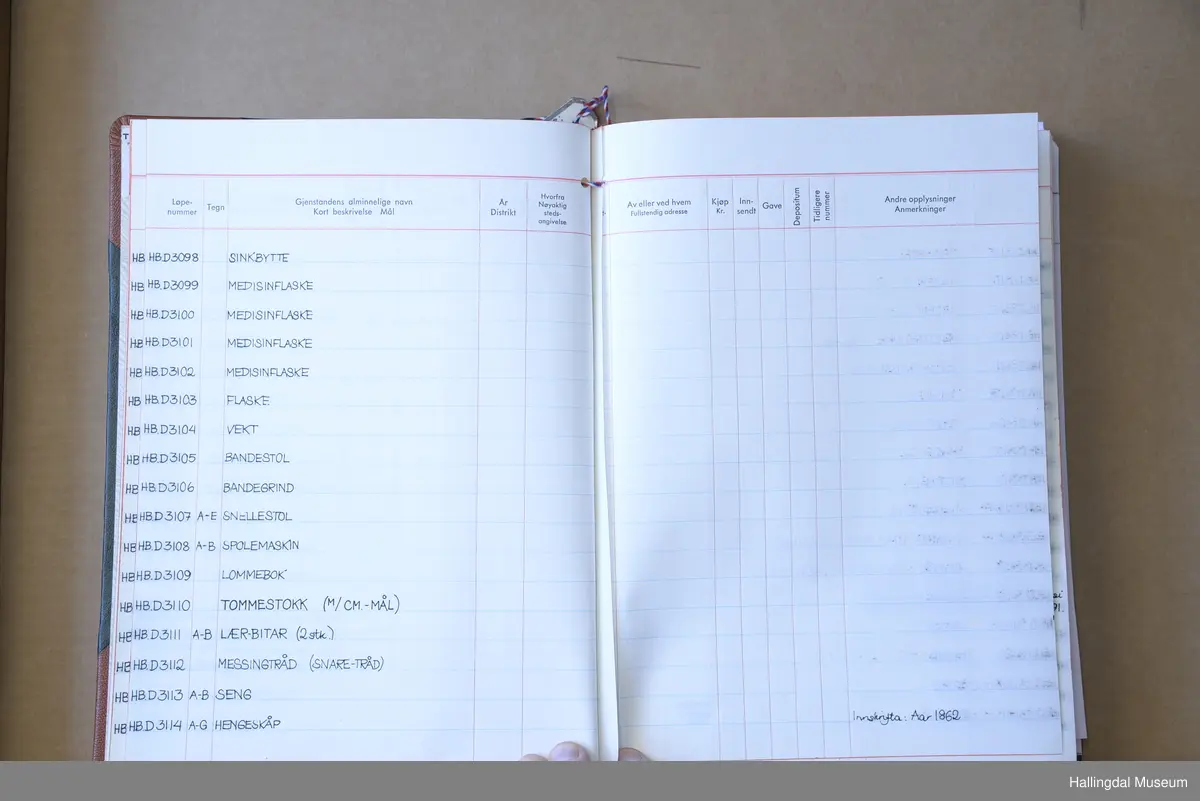 Løpe-
nummer
Tegn
Gjenstandens alminnelige navn
Kort beskrivelse Mål
År
Distrikt
Hvorfra
Nøyaktig
steds-
angivelse
Av eller ved hvem
Fullstendig adresse
Kjøp
Kr.
Inn-
sendt
Gave
Depositum
Tidligere
nummer
Andre opplysninger
Anmerkninger
HB HB.D3098 SINKBYTTE
HB HB.D3099 MEDISINFLASKE
HB HB.D3100 MEDISINFLASKE
HB HB.D3101 MEDISINFLASKE
HB HB.D3102 MEDISINFLASKE
HB HB.D3103 FLASKE
HB HB.D3104 VEKT
HB HB.D3105 BANDESTOL
HB HB.D3106 BANDEGRIND
HB HB.D3107 A-E SNELLESTOL
HB HB.D3108 A-B SPOLEMASKIN
HB HB.D3109 LOMMEBOK
HB HB.D3110 TOMMESTOKK (M/CM.-MÅL)
HB HB.D3111 A-B LÆR-BITAR (2 stk.)
HB HB.D3112 MESSINGTRÅD (SNARE-TRÅD)
HB HB.D3113 A-B SENG
HB HB.D3114 A-G HENGESKÅP Innskrifta: Aar 1862
Hallingdal Museum